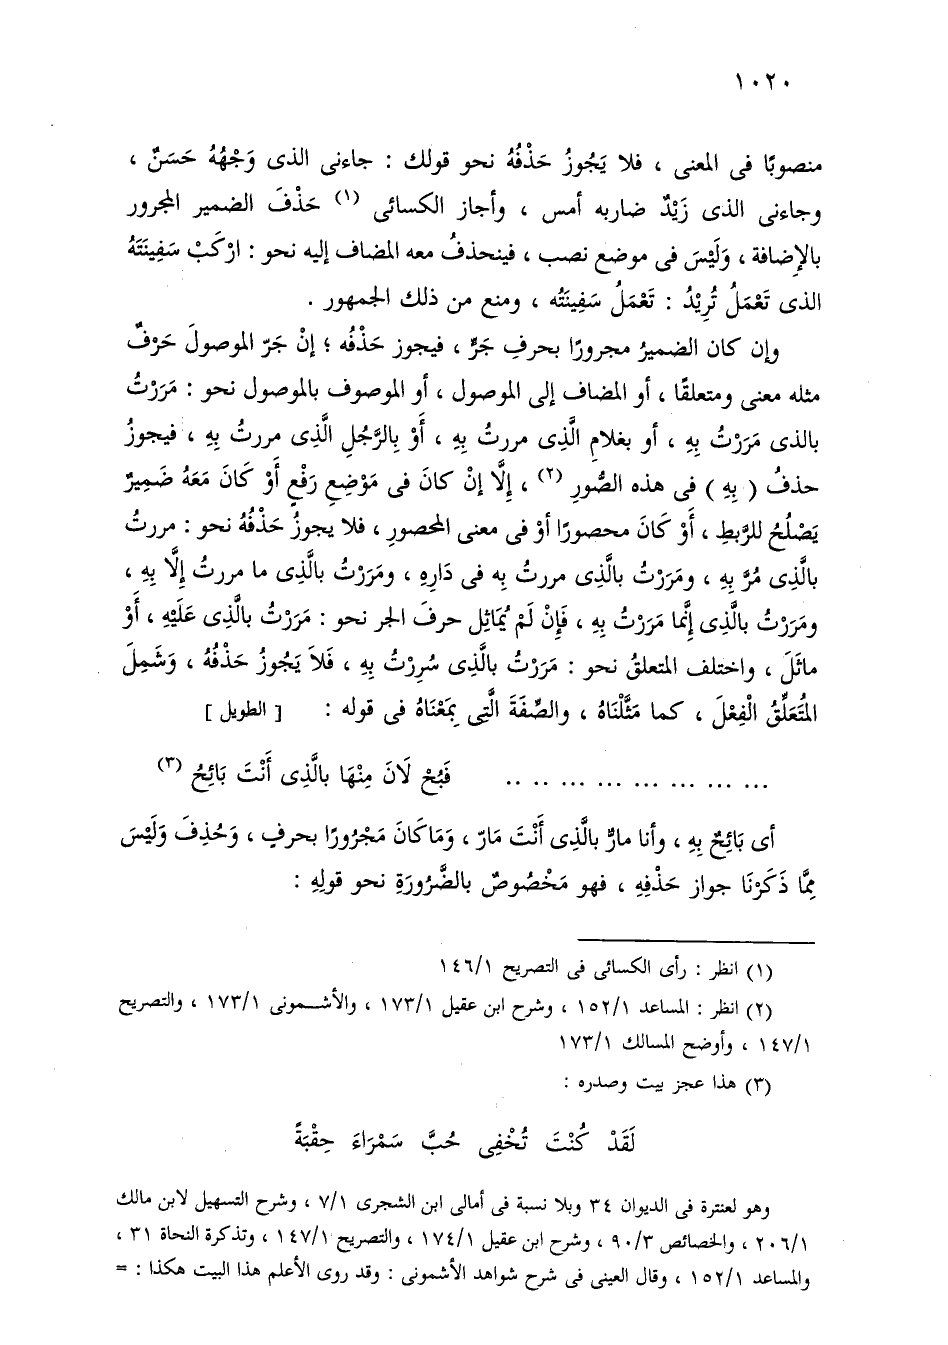 ١٠٢٠
منصوبًا فى المعنى ، فلا يَجُوزُ حَذْفُهُ نحو قولك : جاءنى الذى وَجْهُهُ حَسَنٌ ،
وجاءنى الذى زَيْدٌ ضاربه أمس ، وأجاز الكسائى (١) حَذْفَ الضمير المجرور
بالإضافة ، وَلَيْسَ فى موضع نصب ، فينحذفُ معه المضاف إليه نحو : ارْكَبْ سَفِينَتَهُ
الذى تَعْمَلُ تُرِيْدُ : تَعْمَلُ سَفِينَتُه ، ومنع من ذلك الجمهور .
وإن كان الضميرُ مجرورًا بحرفِ جَرٍّ ، فيجوز حَذْفُه ؛ إنْ جَرّ الموصولَ حَرْفٌ
مثله معنى ومتعلقًا ، أو المضاف إلى الموصول ، أو الموصوف بالموصول نحو : مَرَرْتُ
بالذى مَرَرْتُ بِهِ ، أو بغلامِ الَّذِى مررتُ بِهِ ، أَوْ بِالرَّجُلِ الَّذِى مررتُ بِهِ ، فيجوزُ
حذفُ ( بِهِ ) فى هذه الصُّورِ (٢) ، إِلَّا إنْ كانَ فى مَوْضِعِ رَفْعٍ أَوْ كَانَ مَعَهُ ضَمِيرٌ
يَصْلُحُ للرَّبطِ ، أَوْ كَانَ محصورًا أوْ فى معنى المحصورِ ، فلا يجوزُ حَذْفُهُ نحو : مررتُ
بالَّذِى مُرَّ بِهِ ، ومَرَرْتُ بالَّذِى مررتُ به فى دَارِهِ ، ومَرَرْتُ بالَّذِى ما مررتُ إِلَّا بِهِ ،
ومَرَرْتُ بالَّذِى إِنَّما مَرَرْتُ بِهِ ، فَإِنْ لَمْ يُمَاثِل حرفَ الجر نحو : مَرَرْتُ بالَّذِى عَلَيْهِ ، أَوْ
ماثَلَ ، واختلف المتعلقُ نحو : مَرَرْتُ بالَّذِى سُرِرْتُ بِهِ ، فَلاَ يَجُوزُ حَذْفُهُ ، وَشَمِلَ
المُتَعَلِّقُ الْفِعْلَ ، كما مَثَّلْنَاهُ ، والصِّفَةَ الَّتِى بِمَعْنَاهُ فى قوله : [ الطويل ]
... ... ... ... ... ... .. .. فَبُحْ لَانَ مِنْهَا بالَّذِى أَنْتَ بَائِحُ (٣)
أى بَائِحٌ بِهِ ، وأنا مارٌّ بالَّذِى أَنْتَ مَارّ ، وَمَا كَانَ مَجْرُورًا بحرفٍ ، وَحُذِفَ وَلَيْسَ
مِمَّا ذَكَرْنَا جواز حَذْفِهِ ، فهو مَخْصُوصٌ بالضَّرُورَةِ نحو قولِهِ :
(١) انظر : رأى الكسائى فى التصريح ١٤٦/١
(٢) انظر : المساعد ١٥٢/١ ، وشرح ابن عقيل ١٧٣/١ ، والأشمونى ١٧٣/١ ، والتصريح
١٤٧/١ ، وأوضح المسالك ١٧٣/١
(٣) هذا عجز بيت وصدره :
لَقَدْ كُنْتَ تُخْفِى حُبَّ سَمْرَاءَ حِقْبَةً
وهو لعنترة فى الديوان ٣٤ وبلا نسبة فى أمالى ابن الشجرى ٧/١ ، وشرح التسهيل لابن مالك
٢٠٦/١ ، والخصائص ٩٠/٣ ، وشرح ابن عقيل ١٧٤/١ ، والتصريح ١٤٧/١ ، وتذكرة النحاة ٣١ ،
والمساعد ١٥٢/١ ، وقال العينى فى شرح شواهد الأشمونى : وقد روى الأعلم هذا البيت هكذا : =